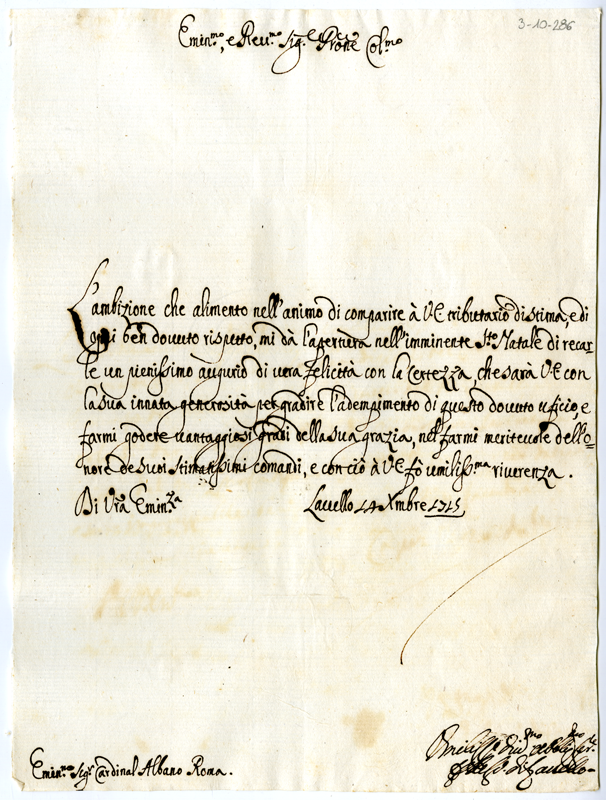 3-10-286
Emin.mo, e Reu.mo Sig.e Prone Col.mo
L'ambizione che alimento nell'animo di comparire à V.E tributario di stima, e di
ogni ben douuto rispetto, mi dà l'apertura nell'imminente S.to Natale di recar=
le un pienissimo augurio di uera felicità con la Certezza, che sarà V.E con
la sua innata generosità per gradire l'adempimento di questo douuto uficio, e
farmi godere uantaggiosi gradi della sua grazia, nel farmi meriteuole dell'o=
nore de suoi stimatissimi comandi, e con ciò à V.E fò umiliss.ma riuerenza.
Di Vra Emin.za
Lauello 14 Xmbre 1715
Emin.mo Sig.r Cardinal Albano Roma.
di Lauello